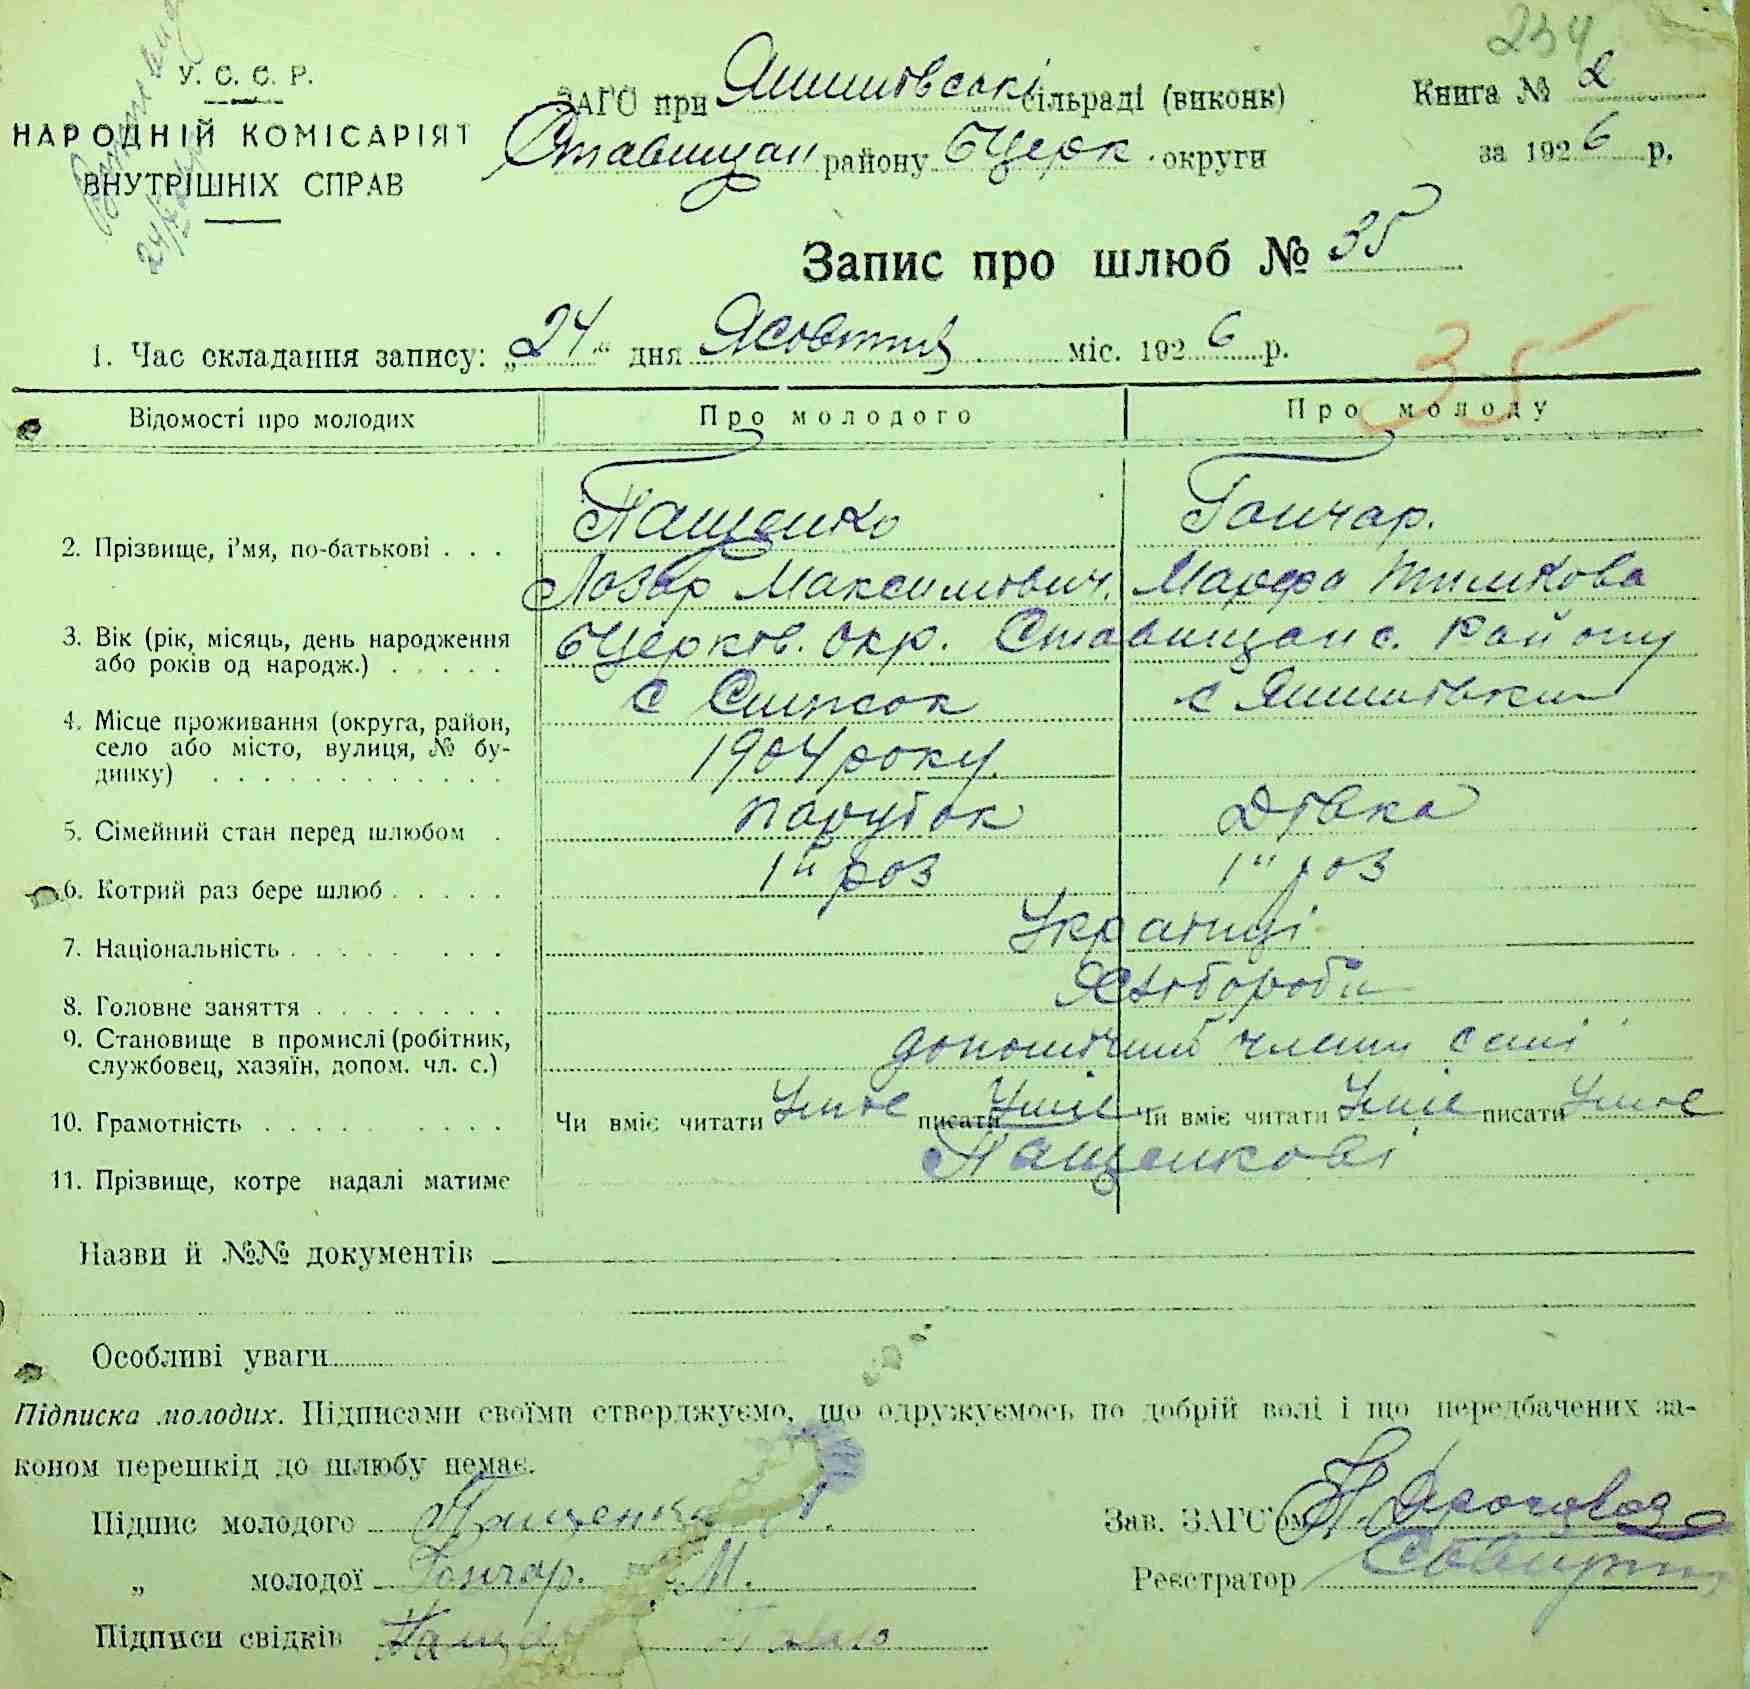 234
У. С. С. Р.
НАРОДНІЙ КОМІСАРІЯТ
ВНУТРІШНІХ СПРАВ
ЗАГС при сільраді (виконк)
Ставищан району БЦерк. округи
Книга № 2
за 1926 р.
Запис про шлюб № 35
1. Час складання запису: „24“ дня Жовтня міс. 1926 р.
35
Відомості про молодих Про молодого Про молоду
2. Прізвище, і'мя, по-батькові . . . Пащенко Гончар.
Лазар Максимович. Марфа Тимкова
3. Вік (рік, місяць, день народження
або років од народж.) . . . . . БЦерков. Окр. Ставищанс. Району
4. Місце проживання (округа, район,
село або місто, вулиця, № бу-
динку) . . . . . . . . . . . .
с
1904 року
5. Сімейний стан перед шлюбом . парубок Дівка
6. Котрий раз бере шлюб . . . . . 1й раз 1й раз
7. Національність . . . . . . . . Українці
8. Головне заняття . . . . . . . . Хлібороби
9. Становище в промислі (робітник,
службовец, хазяїн, допом. чл. с.) члени сімї
10. Грамотність . . . . . . . . . Чи вміє читати Уміє писати Уміє Чи вміє читати Уміє писати Уміє
11. Прізвище, котре надалі матиме Пащенкові
Назви й №№ документів
Особливі уваги
Підписка молодих. Підписами своїми стверджуємо, що одружуємось по добрій волі і що передбачених за-
коном перешкід до шлюбу немає.
Підпис молодого Пащенко
„ молодої Гончар. М.
Підписи свідків
Зав. ЗАГС'ом
Реєстратор